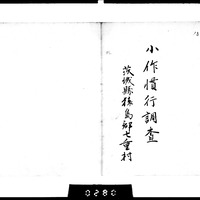 小作慣行調査
茨城縣猿島郡七重村
0280